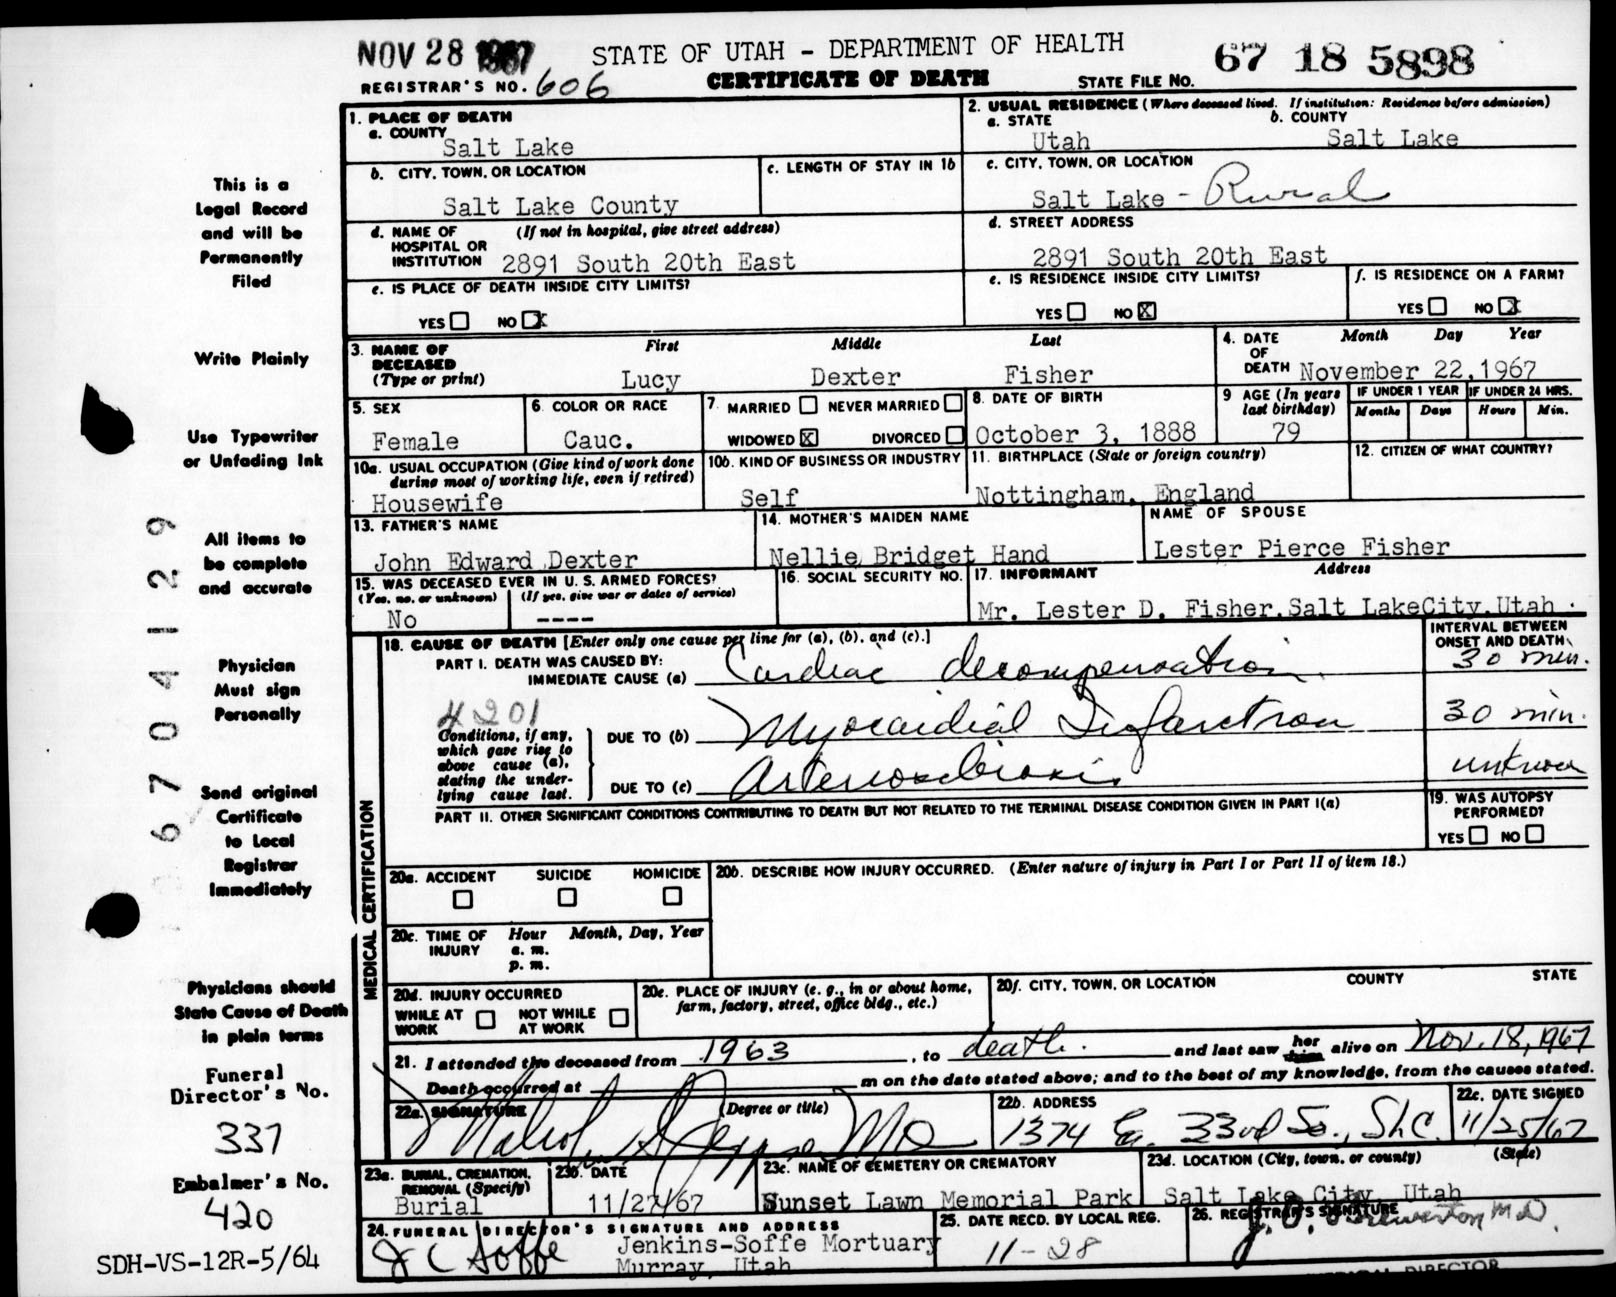 NOV 28 1967
STATE OF UTAH - DEPARTMENT OF HEALTH
67 18 5898
REGISTRAR'S NO. 606
CERTIFICATE OF DEATH
STATE FILE NO.
This is a
Legal Record
and will be
Permanently
Filed
Write Plainly
Use Typewriter
or Unfading Ink
All items to
be complete
and accurate
Physician
Must sign
Personally
Send original
Certificate
to Local
Registrar
Immediately
Physicians should
State Cause of Death
in plain terms
Funeral
Director's No.
337
Embalmer's No.
420
SDH-VS-12R-5/64
67041129
1. PLACE OF DEATH
a. COUNTY
Salt Lake
2. USUAL RESIDENCE (Where deceased lived. If institution: Residence before admission)
a. STATE
Utah
b. COUNTY
Salt Lake
b. CITY, TOWN, OR LOCATION
Salt Lake County
c. LENGTH OF STAY IN 1b
c. CITY, TOWN, OR LOCATION
Salt Lake - Rural
d. NAME OF HOSPITAL OR INSTITUTION
(If not in hospital, give street address)
2891 South 20th East
d. STREET ADDRESS
2891 South 20th East
e. IS PLACE OF DEATH INSIDE CITY LIMITS?
YES NO X
e. IS RESIDENCE INSIDE CITY LIMITS?
YES NO X
f. IS RESIDENCE ON A FARM?
YES NO X
3. NAME OF DECEASED
(Type or print)
First Middle Last
Lucy Dexter Fisher
4. DATE OF DEATH
Month Day Year
November 22, 1967
5. SEX
Female
6. COLOR OR RACE
Cauc.
7. MARRIED NEVER MARRIED
WIDOWED X DIVORCED
8. DATE OF BIRTH
October 3, 1888
9 AGE (In years last birthday)
79
IF UNDER 1 YEAR
Months Days
IF UNDER 24 HRS.
Hours Min.
10a. USUAL OCCUPATION (Give kind of work done during most of working life, even if retired)
Housewife
10b. KIND OF BUSINESS OR INDUSTRY
Self
11. BIRTHPLACE (State or foreign country)
Nottingham, England
12. CITIZEN OF WHAT COUNTRY?
13. FATHER'S NAME
John Edward Dexter
14. MOTHER'S MAIDEN NAME
Nellie Bridget Hand
NAME OF SPOUSE
Lester Pierce Fisher
15. WAS DECEASED EVER IN U. S. ARMED FORCES?
(Yes, no, or unknown) (If yes, give war or dates of service)
No ----
16. SOCIAL SECURITY NO.
17. INFORMANT Address
Mr. Lester D. Fisher, Salt Lake City, Utah
MEDICAL CERTIFICATION
18. CAUSE OF DEATH [Enter only one cause per line for (a), (b), and (c).]
INTERVAL BETWEEN ONSET AND DEATH
PART I. DEATH WAS CAUSED BY:
IMMEDIATE CAUSE (a) Cardiac decompensation 30 min.
4201
Conditions, if any, which gave rise to above cause (a), stating the underlying cause last.
DUE TO (b) Myocardial Infarction 30 min.
DUE TO (c) Arteriosclerosis unknown
PART II. OTHER SIGNIFICANT CONDITIONS CONTRIBUTING TO DEATH BUT NOT RELATED TO THE TERMINAL DISEASE CONDITION GIVEN IN PART I(a)
19. WAS AUTOPSY PERFORMED?
YES NO
20a. ACCIDENT SUICIDE HOMICIDE
20b. DESCRIBE HOW INJURY OCCURRED. (Enter nature of injury in Part I or Part II of item 18.)
20c. TIME OF INJURY
Hour Month, Day, Year
a. m.
p. m.
20d. INJURY OCCURRED
WHILE AT WORK NOT WHILE AT WORK
20e. PLACE OF INJURY (e. g., in or about home, farm, factory, street, office bldg., etc.)
20f. CITY, TOWN, OR LOCATION COUNTY STATE
21. I attended the deceased from 1963, to death. and last saw her him alive on Nov. 18, 1967
Death occurred at m on the date stated above; and to the best of my knowledge, from the causes stated.
22a. SIGNATURE (Degree or title)
MD
22b. ADDRESS
1374 E. 33rd So., SLC.
22c. DATE SIGNED
11/25/67
23a. BURIAL, CREMATION, REMOVAL (Specify)
Burial
23b. DATE
11/27/67
23c. NAME OF CEMETERY OR CREMATORY
Sunset Lawn Memorial Park
23d. LOCATION (City, town, or county) (State)
Salt Lake City, Utah
24. FUNERAL DIRECTOR'S SIGNATURE AND ADDRESS
J C Soffe
Jenkins-Soffe Mortuary
Murray, Utah
25. DATE RECD. BY LOCAL REG.
11-28
26. REGISTRAR'S SIGNATURE
M.D.
DIRECTOR